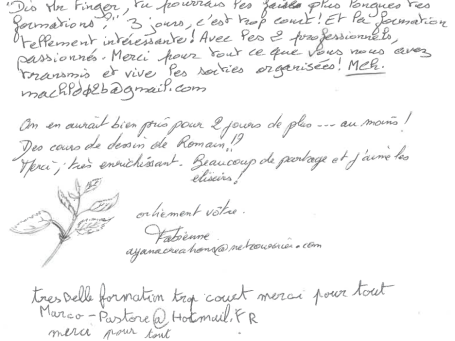 "Dis Mr Finger, tu pourrais les faire plus longues tes
formations?" 3 jours, c'est trop court! Et la formation
tellement intéressante! Avec les 2 professionnels,
passionnés. Merci pour tout ce que vous nous avez
transmis et vive les soirées organisées! Mch.
On en aurait bien pris pour 2 jours de plus --- au moins!
Des cours de dessin de Romain!?
Merci, très enrichissant. Beaucoup de partage et j'aime les
élixirs!
ortiement vôtre.
Fabienne
tres belle formation trop court merci pour tout
Marco-Pastore@Hotmail.FR
merci pour tout